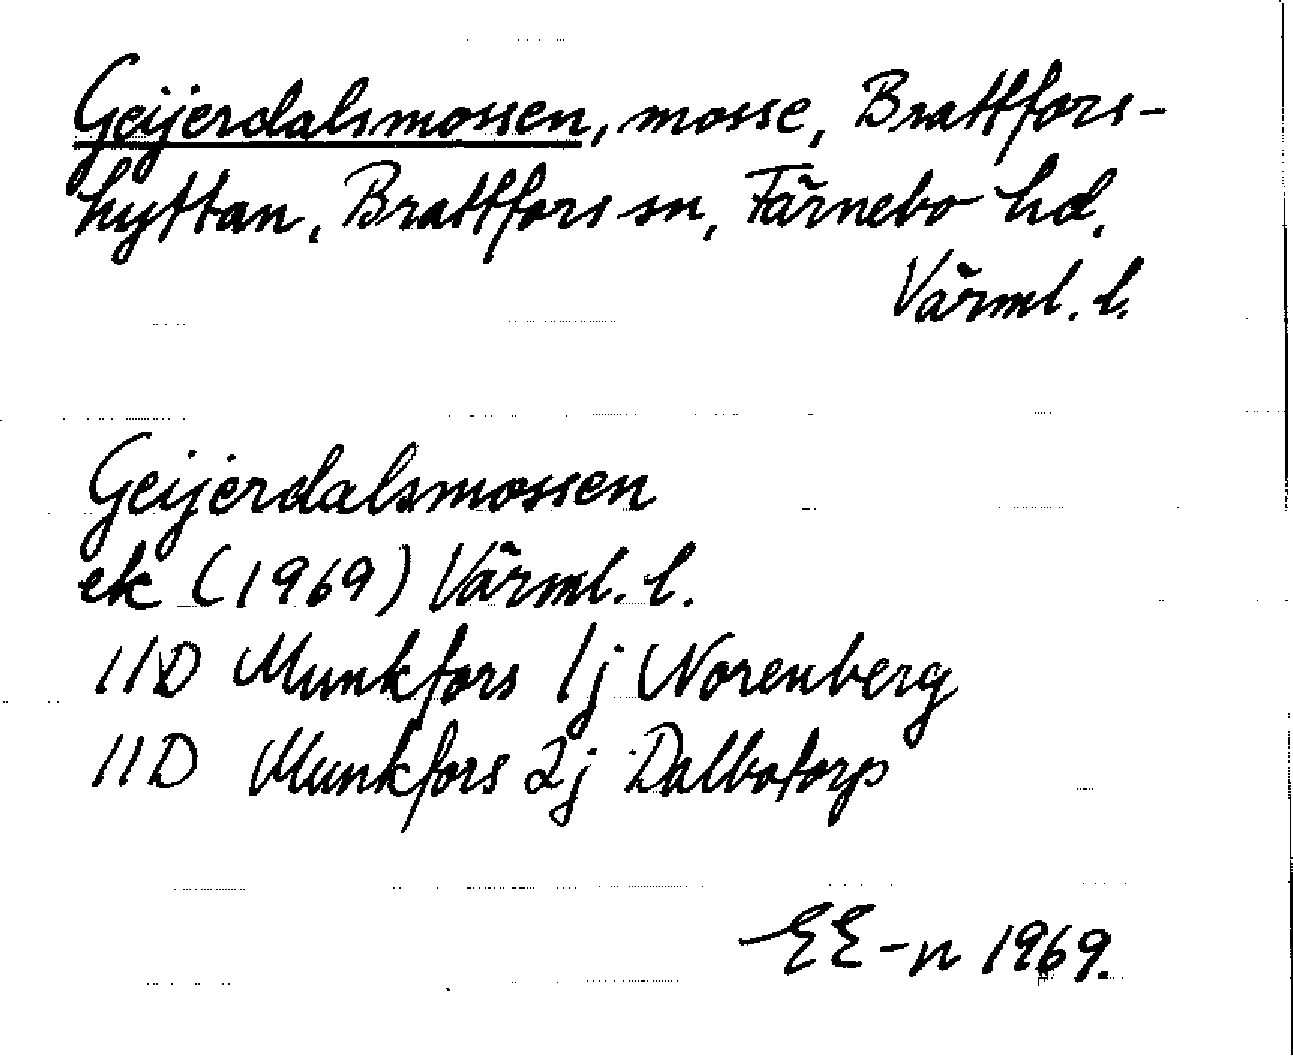 Geijerdalsmossen, mosse, Brattfors-
hyttan, Brattfors sn, Färnebo hd,
Värml. l.
Geijerdalsmossen
ek (1969) Värml. l.
11D Munkfors 1j Norenberg
11D Munkfors 2j Dalbotorp
EE-n 1969.